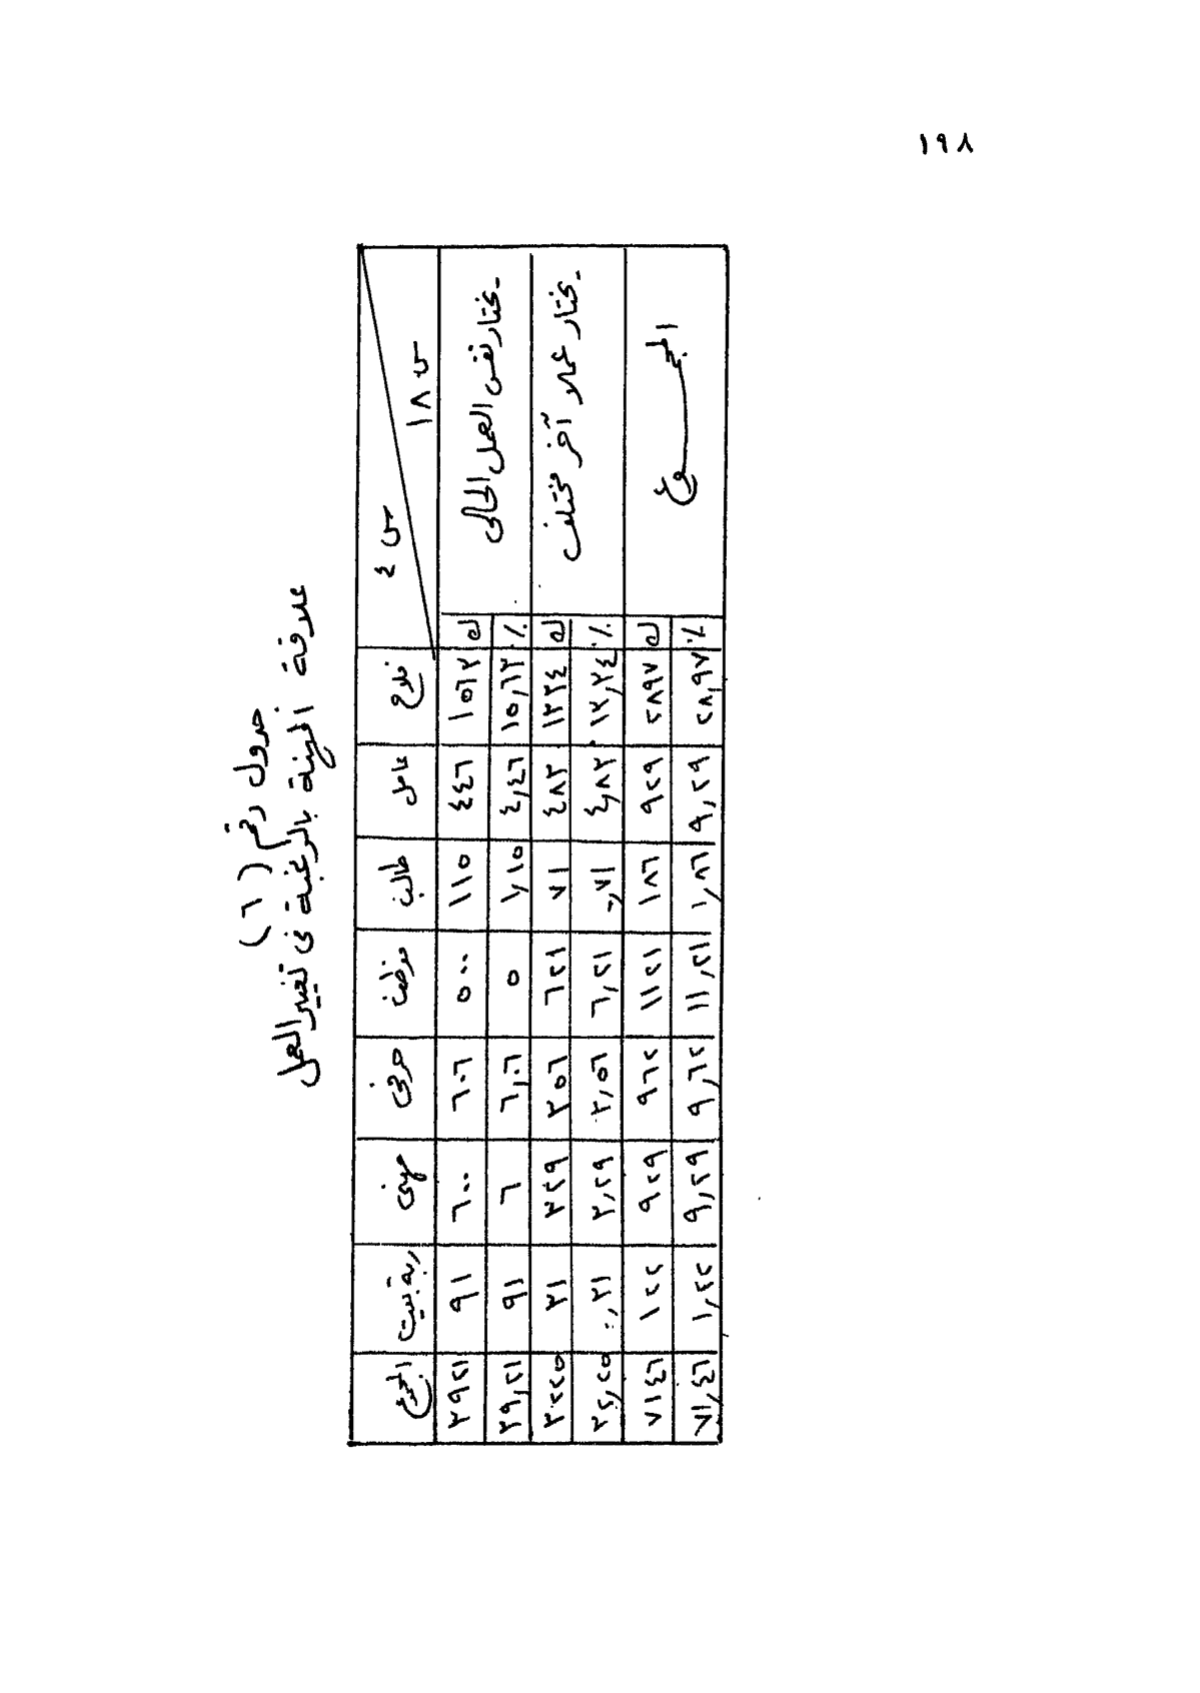 ١٩٨
جدول رقم (٦)
علاقة المهنة بالرغبة فى تغيير العمل
س ١٨
س ٤ فلاح عامل طالب موظف حرفى مهنى ربة بيت المجموع
- يختار نفس العمل الحالى ك ١٥٦٣ ٤٤٦ ١١٥ ٥٠٠ ٦٠٦ ٦٠٠ ٩١ ٣٩٢١
٪ ١٥,٦٣ ٤,٤٦ ١,١٥ ٥ ٦,٠٦ ٦ ٩١ ٣٩,٢١
- يختار عملا آخر مختلف ك ١٣٣٤ ٤٨٣ ٧١ ٦٢١ ٣٥٦ ٣٢٩ ٣١ ٣٢٢٥
٪ ١٣,٣٤ ٤,٨٣ ٠,٧١ ٦,٢١ ٣,٥٦ ٣,٢٩ ٠,٣١ ٣٢,٢٥
المجموع ك ٢٨٩٧ ٩٢٩ ١٨٦ ١١٢١ ٩٦٢ ٩٢٩ ١٢٢ ٧١٤٦
٪ ٢٨,٩٧ ٩,٢٩ ١,٨٦ ١١,٢١ ٩,٦٢ ٩,٢٩ ١,٢٢ ٧١,٤٦